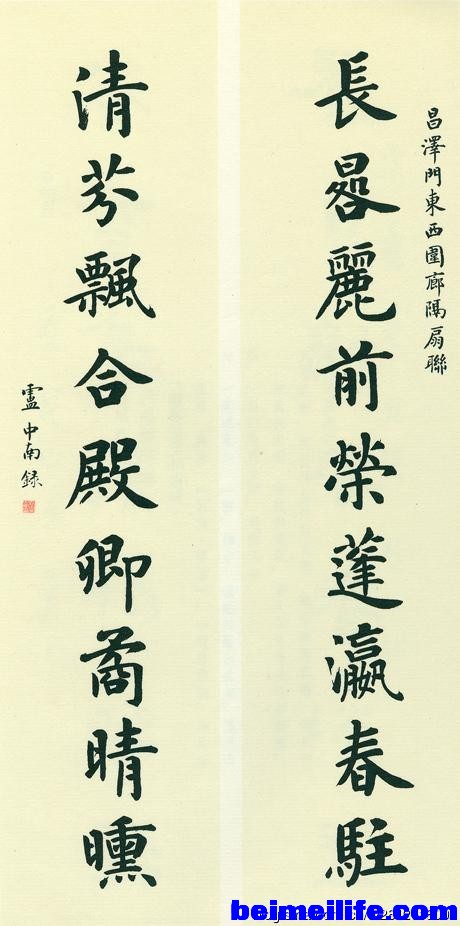 昌澤門東西圍廊隔扇聯
長晷麗前榮蓬瀛春駐
清芬飄合殿卿矞晴曛
盧中南録
beimeilife.com